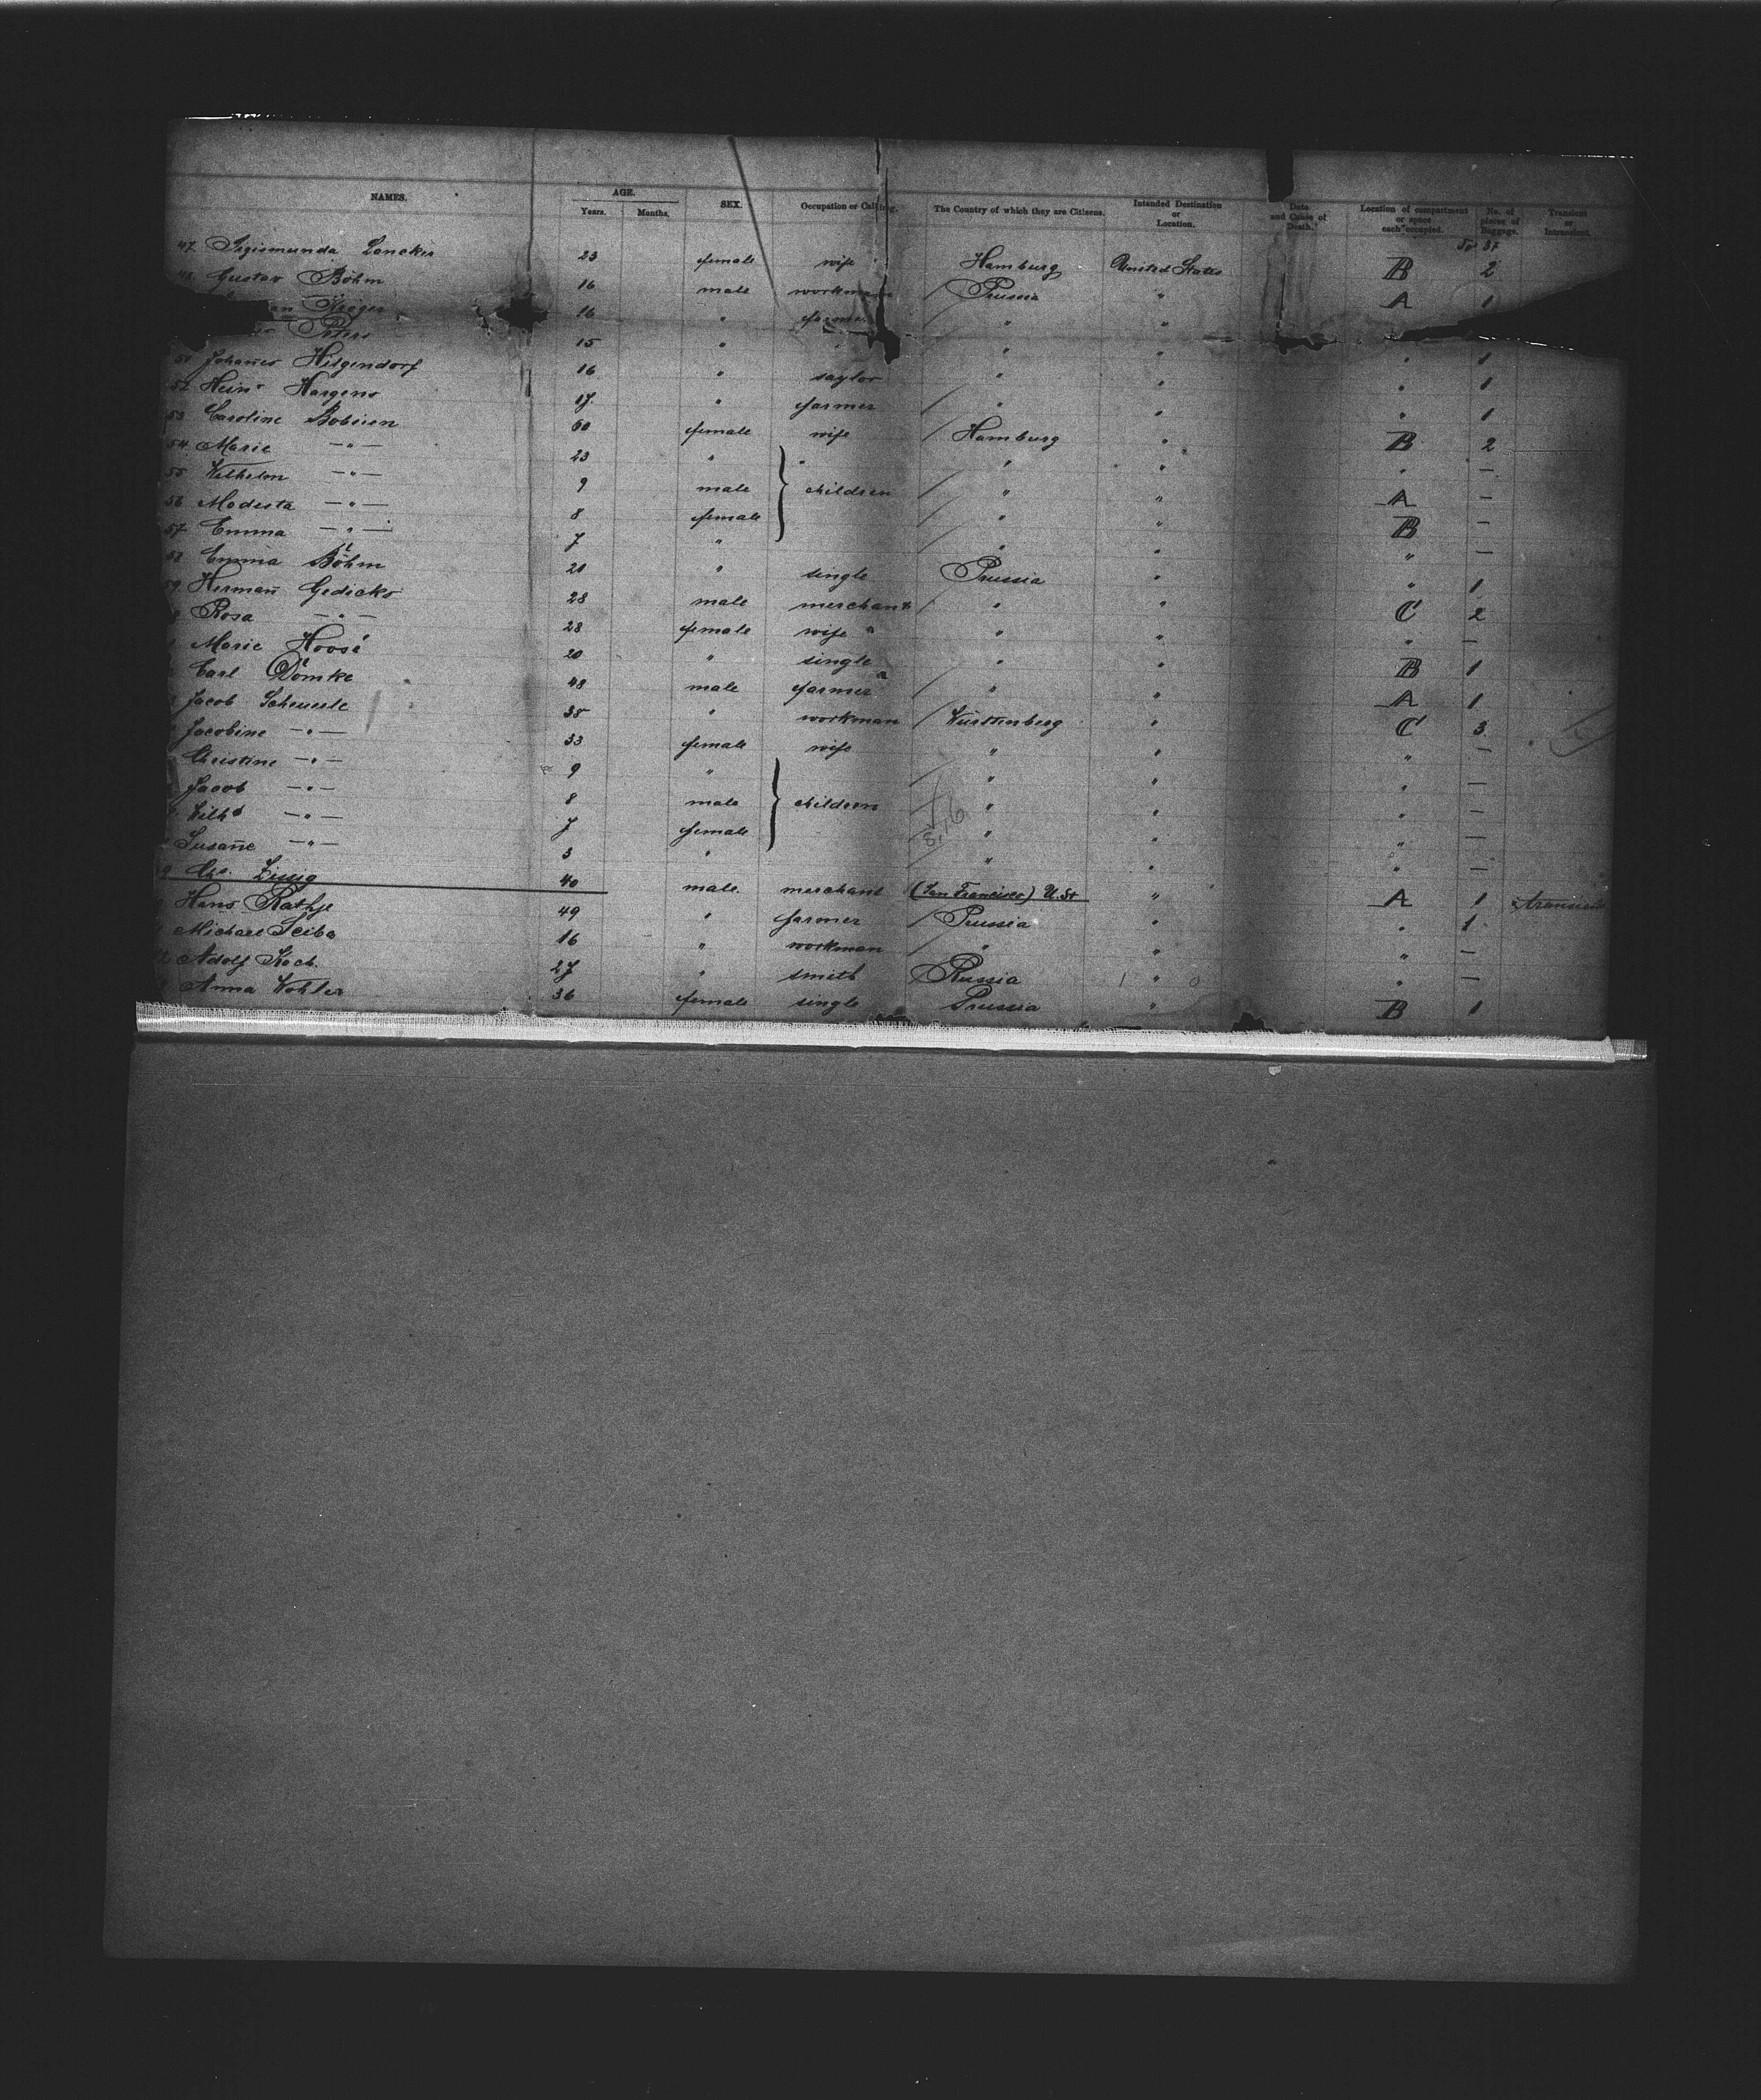 NAMES. AGE. Years. Months. SEX. Occupation or Calling. The Country of which they are Citizens. Intended Destination or Location. Date and Cause of Death. Location of compartment or space each occupied. No. of pieces of Baggage. Transient or Intransient.
47 Sigismunda 23 female wife Hamburg United States B 2
48 Gustav Böhm 16 male workman Prussia " A 1
Kröger 16 " farmer " "
Peters 15 " " " " " 1
Johañes Hilgendorf 16 " saylor " " " 1
52 Heinr Hargens 17 " farmer " " " 1
53 Caroline Bobsien 60 female wife Hamburg " B 2
54 Marie —"— 23 " " " " " —
55 Wilhelm —"— 9 male children " " A —
56 Modesta —"— 8 female " " B —
57 Emma —"— 7 " " " " —
58 Emma Böhm 20 " single Prussia " " 1
59 Hermañ Gedicks 28 male merchant " " C 2
Rosa —"— 28 female wife " " " —
Marie Hoosé 20 " single " " B 1
Carl Dömke 48 male farmer " " A 1
Jacob Scheuerle 38 " workman Würtemberg " C 3
Jacobine —"— 33 female wife " " " —
Christine —"— 9 " " " " —
Jacob —"— 8 male children " " " —
Wilh. —"— 7 female " " " —
Susañe —"— 3 " " " " —
40 male. merchant (San Francisco) U. St " A 1 transient
Hans Rathje 49 " farmer Prussia " " 1
Michael Sciba 16 " workman " " " —
Adolf Koch. 27 " smith Russia " " —
Anna Wohler 36 female single Prussia " B 1